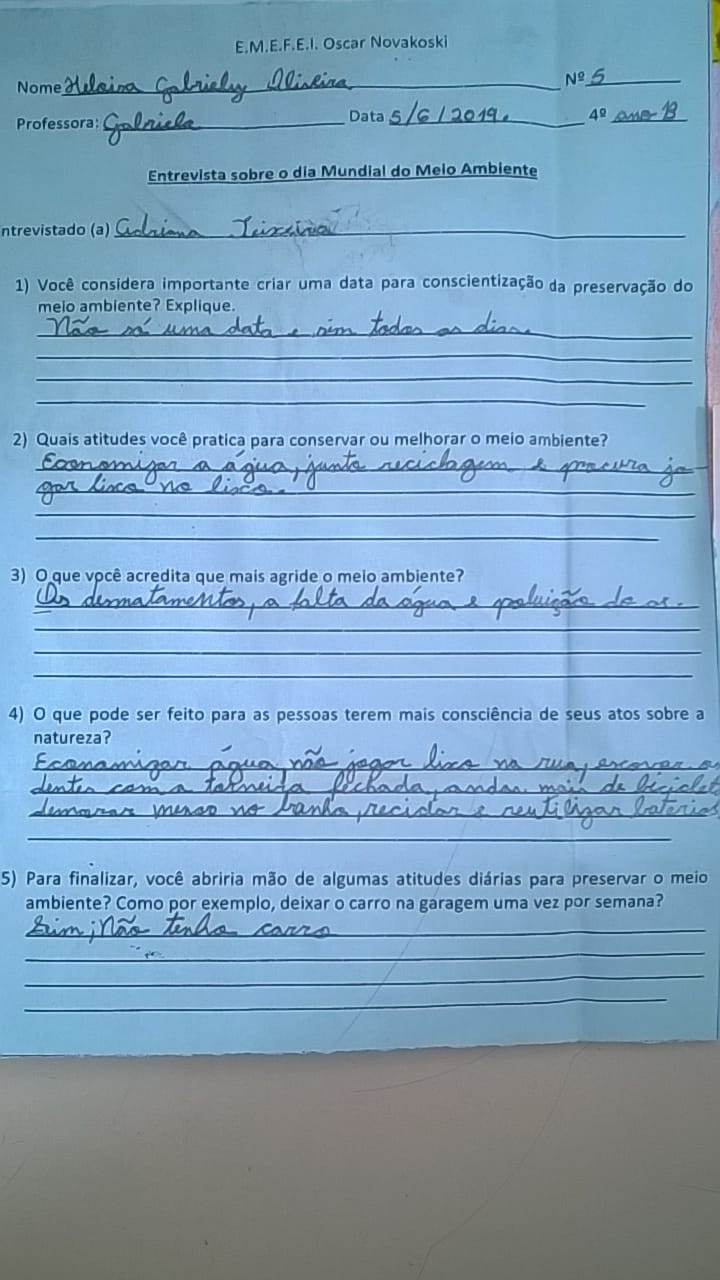 E.M.E.F.E.I. Oscar Novakoski
Nome Heloisa Gabriely Oliveira Nº 5
Professora: Gabriela Data 5/6/2019. 4º ano B
Entrevista sobre o dia Mundial do Meio Ambiente
ntrevistado (a) Adriana Teixeira
1) Você considera importante criar uma data para conscientização da preservação do
meio ambiente? Explique.
Não só uma data e sim todos os dias.
2) Quais atitudes você pratica para conservar ou melhorar o meio ambiente?
Economizar a água, junto reciclagem e procura jo-
gar lixo no lixo.
3) O que você acredita que mais agride o meio ambiente?
Os desmatamentos, a falta da água e poluição do ar.
4) O que pode ser feito para as pessoas terem mais consciência de seus atos sobre a
natureza?
Economizar água não jogar lixo na rua, escovar os
dentes com a torneida fechada, andar mais de biciclet
demorar menso no banho, reciclar e reutilizar baterias
5) Para finalizar, você abriria mão de algumas atitudes diárias para preservar o meio
ambiente? Como por exemplo, deixar o carro na garagem uma vez por semana?
Sim; Não tenho carro